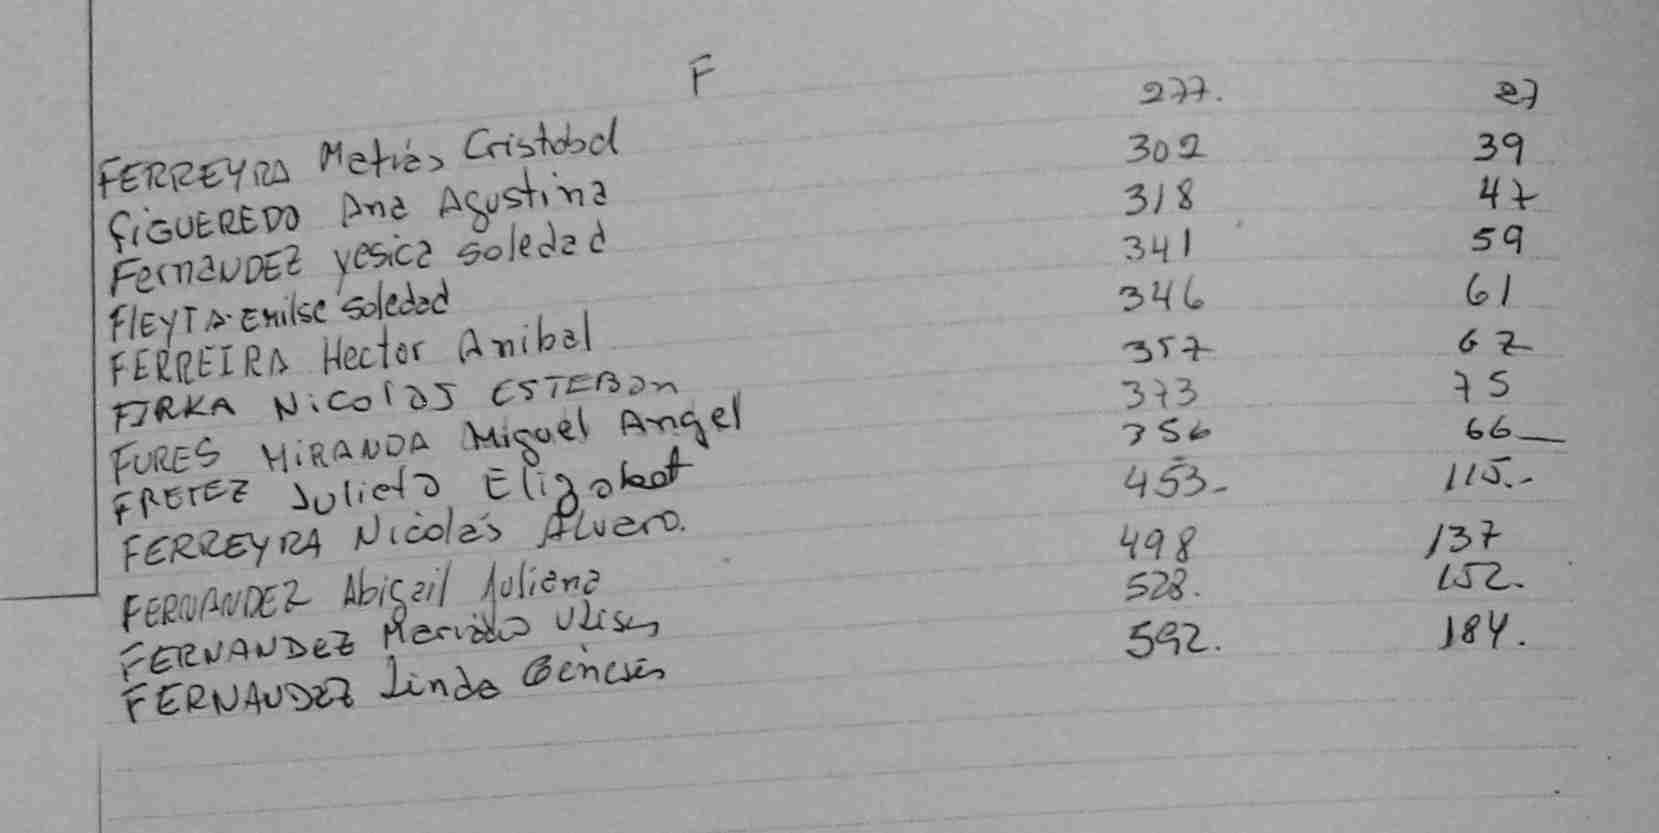 F
FERREYRA Matías Cristobal 277. 27
FiGUEREDO Ana Agustina 302 39
FernaNDEZ yesica soledad 318 47
FlEYTA Emilse soledad 341 59
FERREIRA Hector Anibal 346 61
FIRKA NicolaS ESTEBan 357 67
FURES MiRANDA Miguel Angel 373 75
FRETEZ Julieta Elizabet 356 66
FERREYRA Nicolás Alvaro. 453- 115.-
FERNANDEZ Abigail Juliana 498 137
FERNANDEZ Ulises 528. 152.
FERNANDEZ Linda Genesis 592. 184.